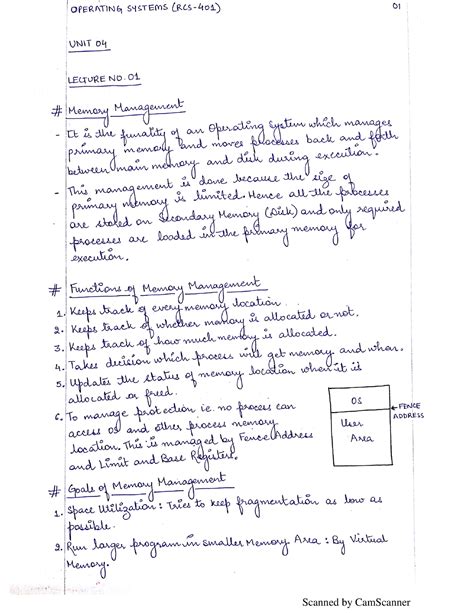 OPERATING SYSTEMS (RCS-401)
01
UNIT 04
LECTURE NO. 01
# Memory Management
- It is the funality of an Operating System which manages
primary memory and moves processes back and forth
between main memory and disk during execution.
- This management is done because the size of
primary memory is limited. Hence all the processes
are stored on Secondary Memory (Disk) and only required
processes are loaded in the primary memory for
execution.
# Functions of Memory Management
1. Keeps track of every memory location.
2. Keeps track of whether memory is allocated or not.
3. Keeps track of how much memory is allocated.
4. Takes decision which process will get memory and when.
5. Updates the status of memory location when it is
allocated or freed.
6. To manage protection i.e. no process can
access OS and other process memory
location. This is managed by Fence Address
and Limit and Base Registers.
OS
FENCE
ADDRESS
User
Area
# Goals of Memory Management
1. Space Utilization : Tries to keep fragmentation as low as
possible.
2. Run larger program in smaller Memory Area : By Virtual
Memory.
Scanned by CamScanner